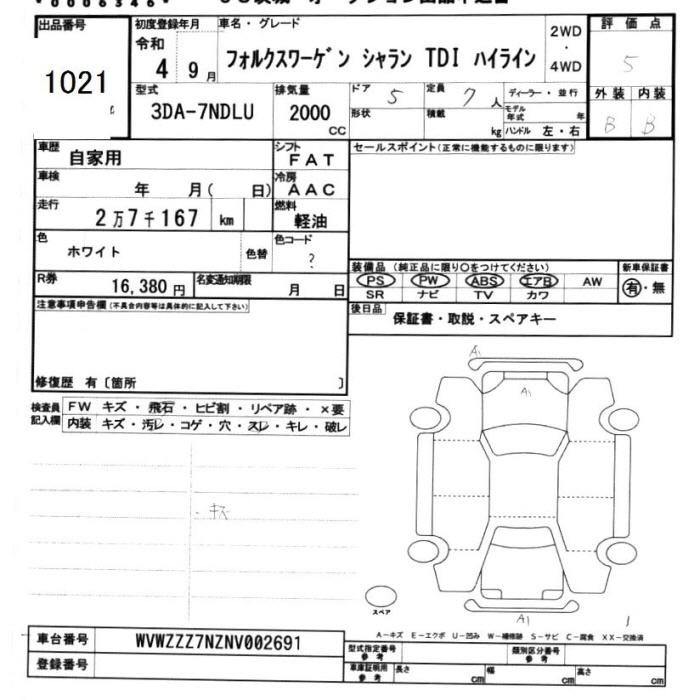 V0006346V
出品番号
1021
初度登録年月
令和
4 9月
車名・グレード
フォルクスワーゲン シャラン TDI ハイライン
2WD
・
4WD
評価点
5
外装 内装
B B
型式
3DA-7NDLU
排気量
2000
CC
ドア
5
定員
7人
形状
積載
kg
ディーラー・並行
モデル年式 年
ハンドル 左・右
車歴
自家用
シフト
FAT
車検
年 月( 日)
冷房
AAC
走行
2万7千167 km
燃料
軽油
色
ホワイト
色替
色コード
?
R券
16,380円
名変通知期限
月 日
セールスポイント(正常に機能するものに限ります)
装備品 (純正品に限り○をつけてください)
PS PW ABS エアB AW
SR ナビ TV カワ
新車保証書
有・無
後日品
保証書・取説・スペアキー
注意事項申告欄(不具合内容等は具体的に記入して下さい)
修復歴 有〔箇所 〕
検査員記入欄
FW キズ・飛石・ヒビ割・リペア跡・×要
内装 キズ・汚レ・コゲ・穴・スレ・キレ・破レ
- キズ
A1
A1
スペア
A1
A-キズ E-エクボ U-凹み W-補修跡 S-サビ C-腐食 XX-交換済
車台番号
WVWZZZ7NZNV002691
登録番号
型式指定番号
参考
類別区分番号
参考
車庫証明用
参考
長さ cm
幅 cm
高さ cm